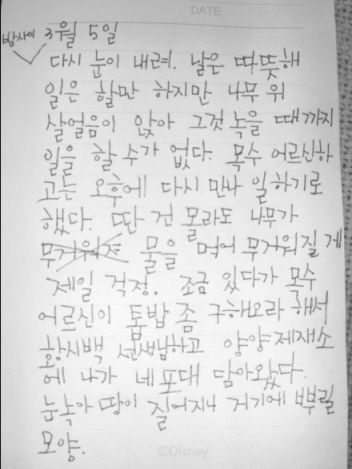 DATE
3월 5일
밤사이 다시 눈이 내려. 날은 따뜻해
일은 할만 하지만 나무 위
살얼음이 앉아 그것 녹을 때까지
일을 할 수가 없다. 목수 어르신하
고는 오후에 다시 만나 일하기로
했다. 딴 건 몰라도 나무가
무거워져 물을 먹어 무거워질 게
제일 걱정. 조금 있다가 목수
어르신이 톱밥 좀 구해오라 해서
황시백 선생님하고 양양제재소
에 나가 네 포대 담아왔다.
눈 녹아 땅이 질어지니 거기에 뿌릴
모양.
©Disney